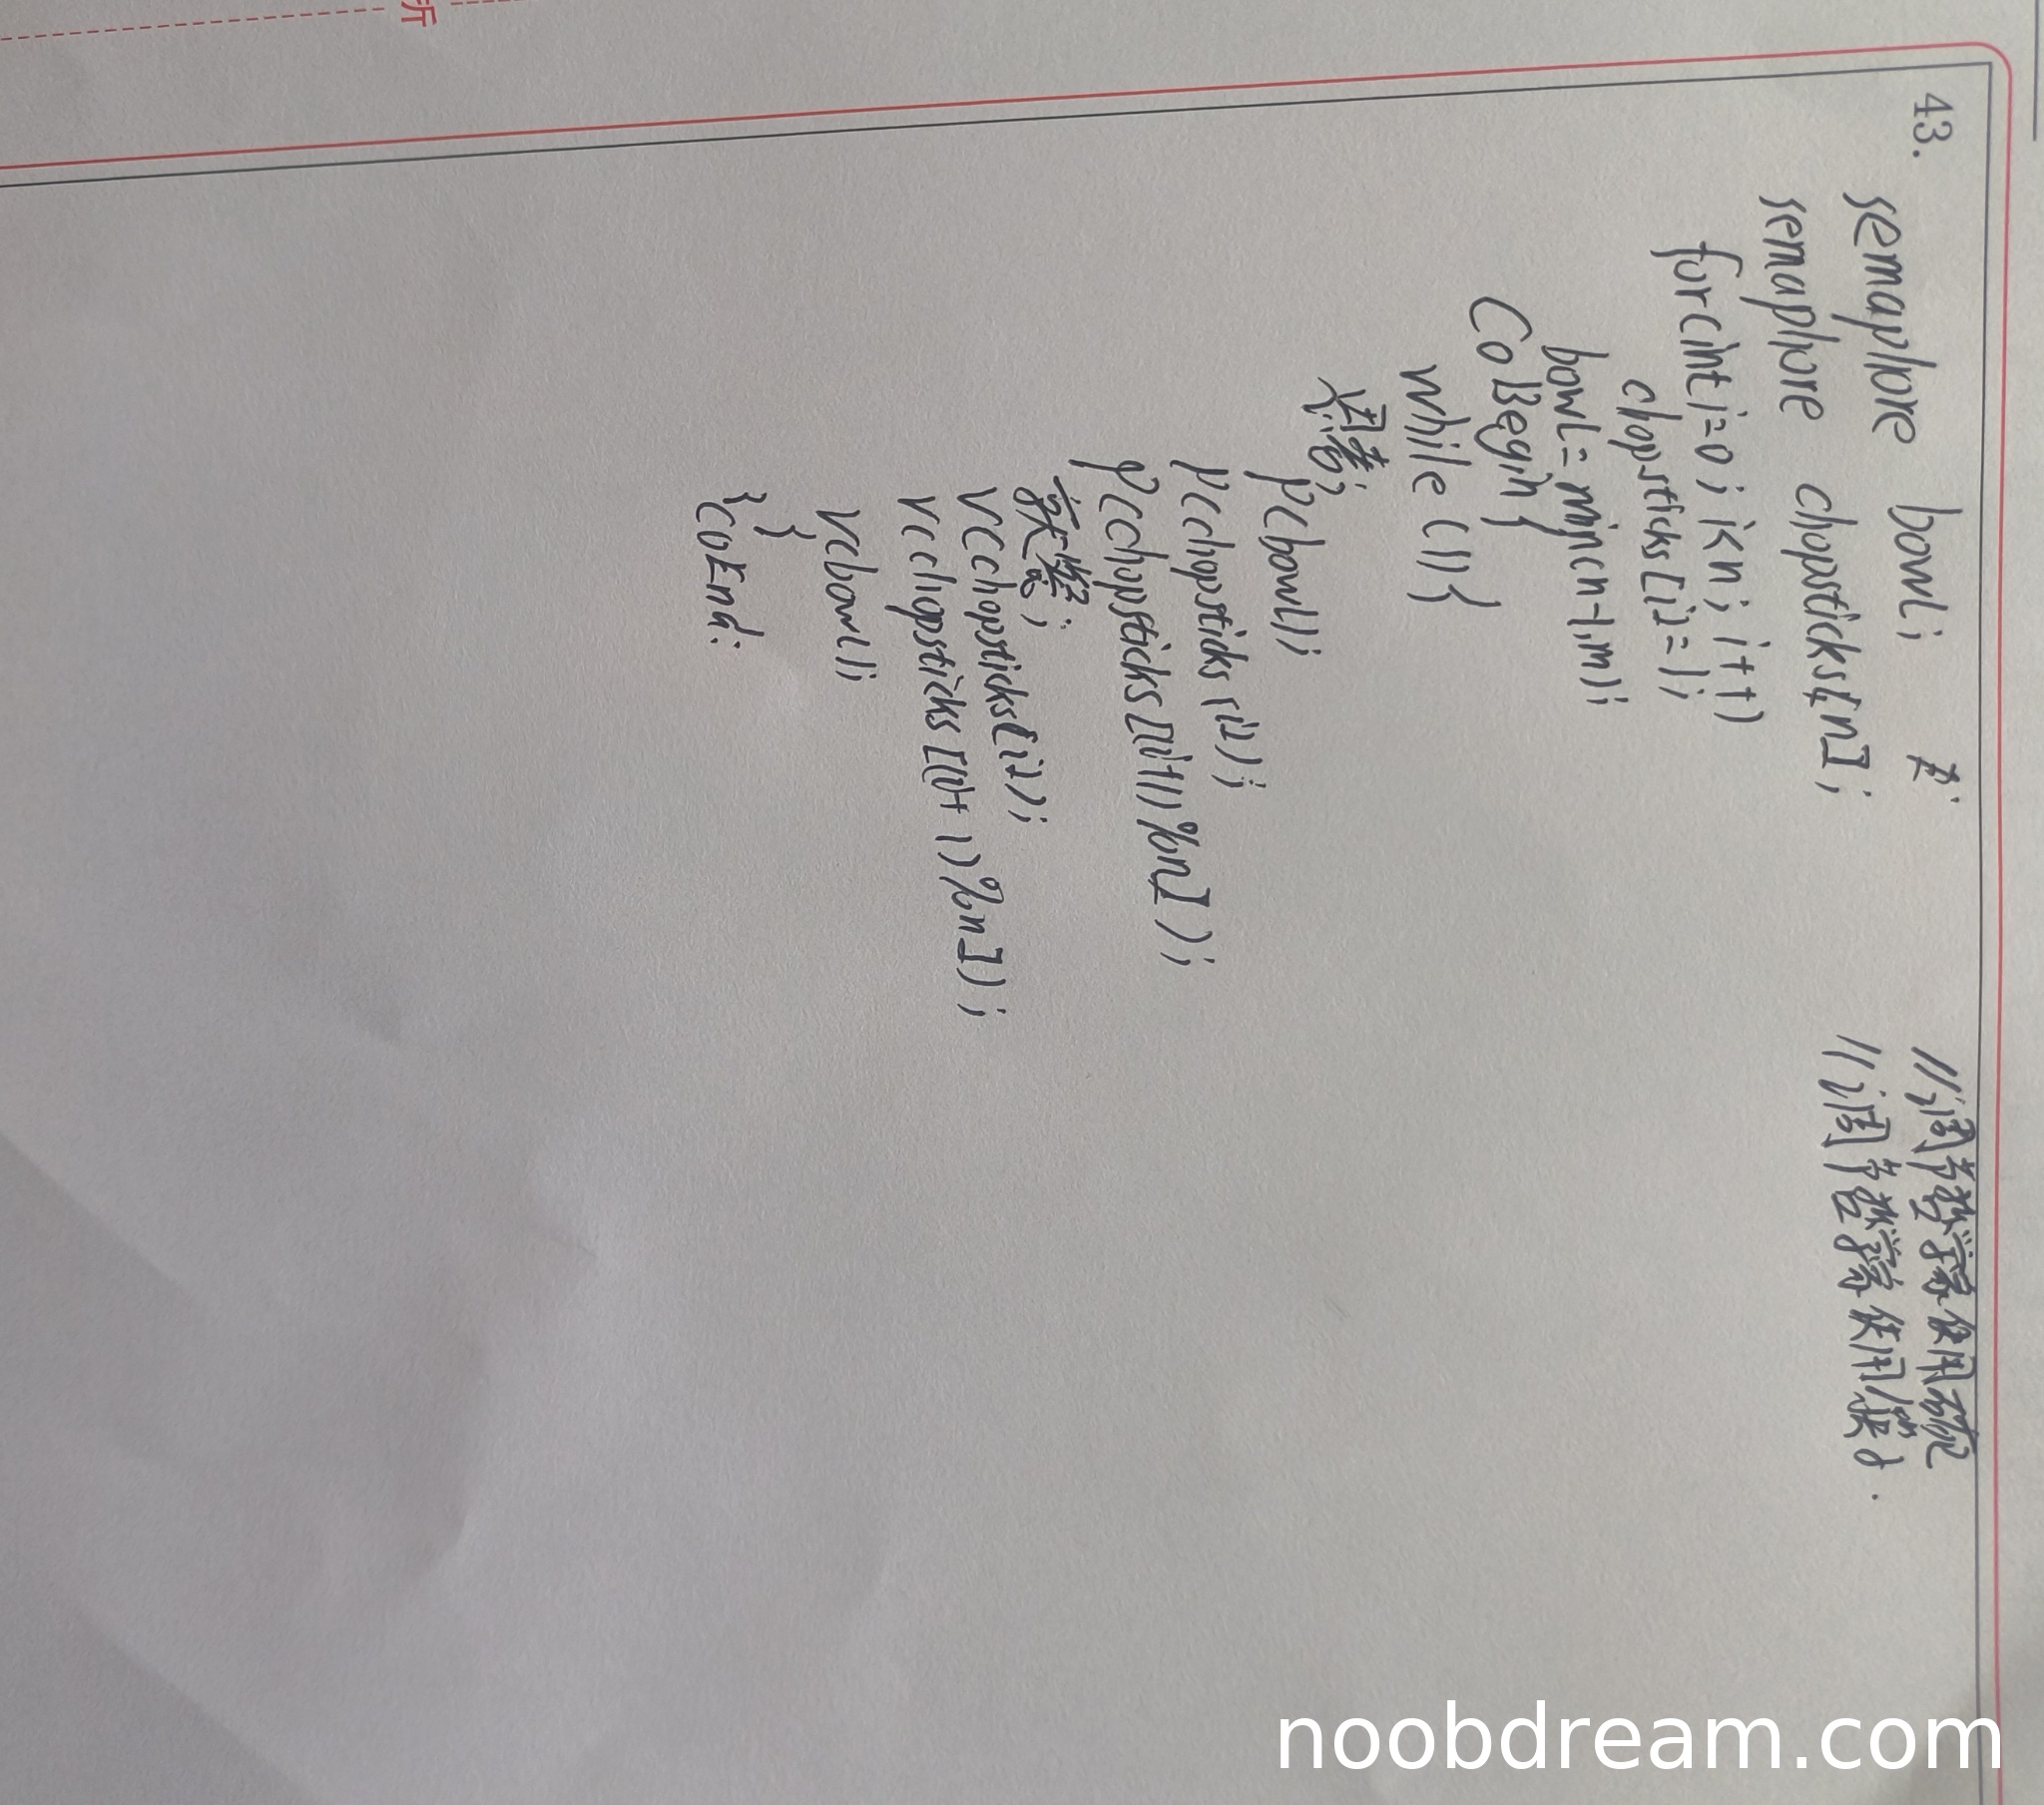 43.
semaphore bowl;
//调节哲学家使用碗
semaphore chopsticks[n];
//调节哲学家使用筷子.
for(int i=0; i<n; i++)
chopsticks[i]=1;
bowl=min(n-1,m);
CoBegin{
while(1){
思考;
P(bowl);
P(chopsticks[i]);
P(chopsticks[(i+1)%n]);
就餐;
V(chopsticks[i]);
V(chopsticks[(i+1)%n]);
V(bowl);
}
}CoEnd.
noobdream.com